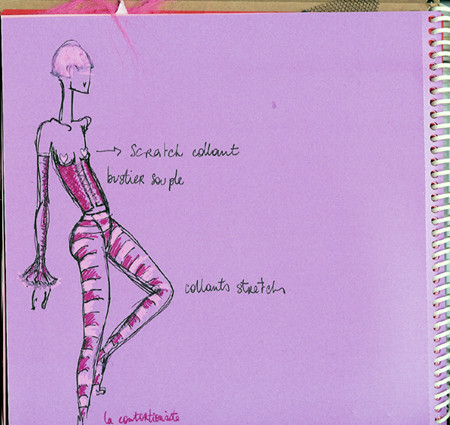 → scratch collant
bustier souple
collants stretch
la contortionniste